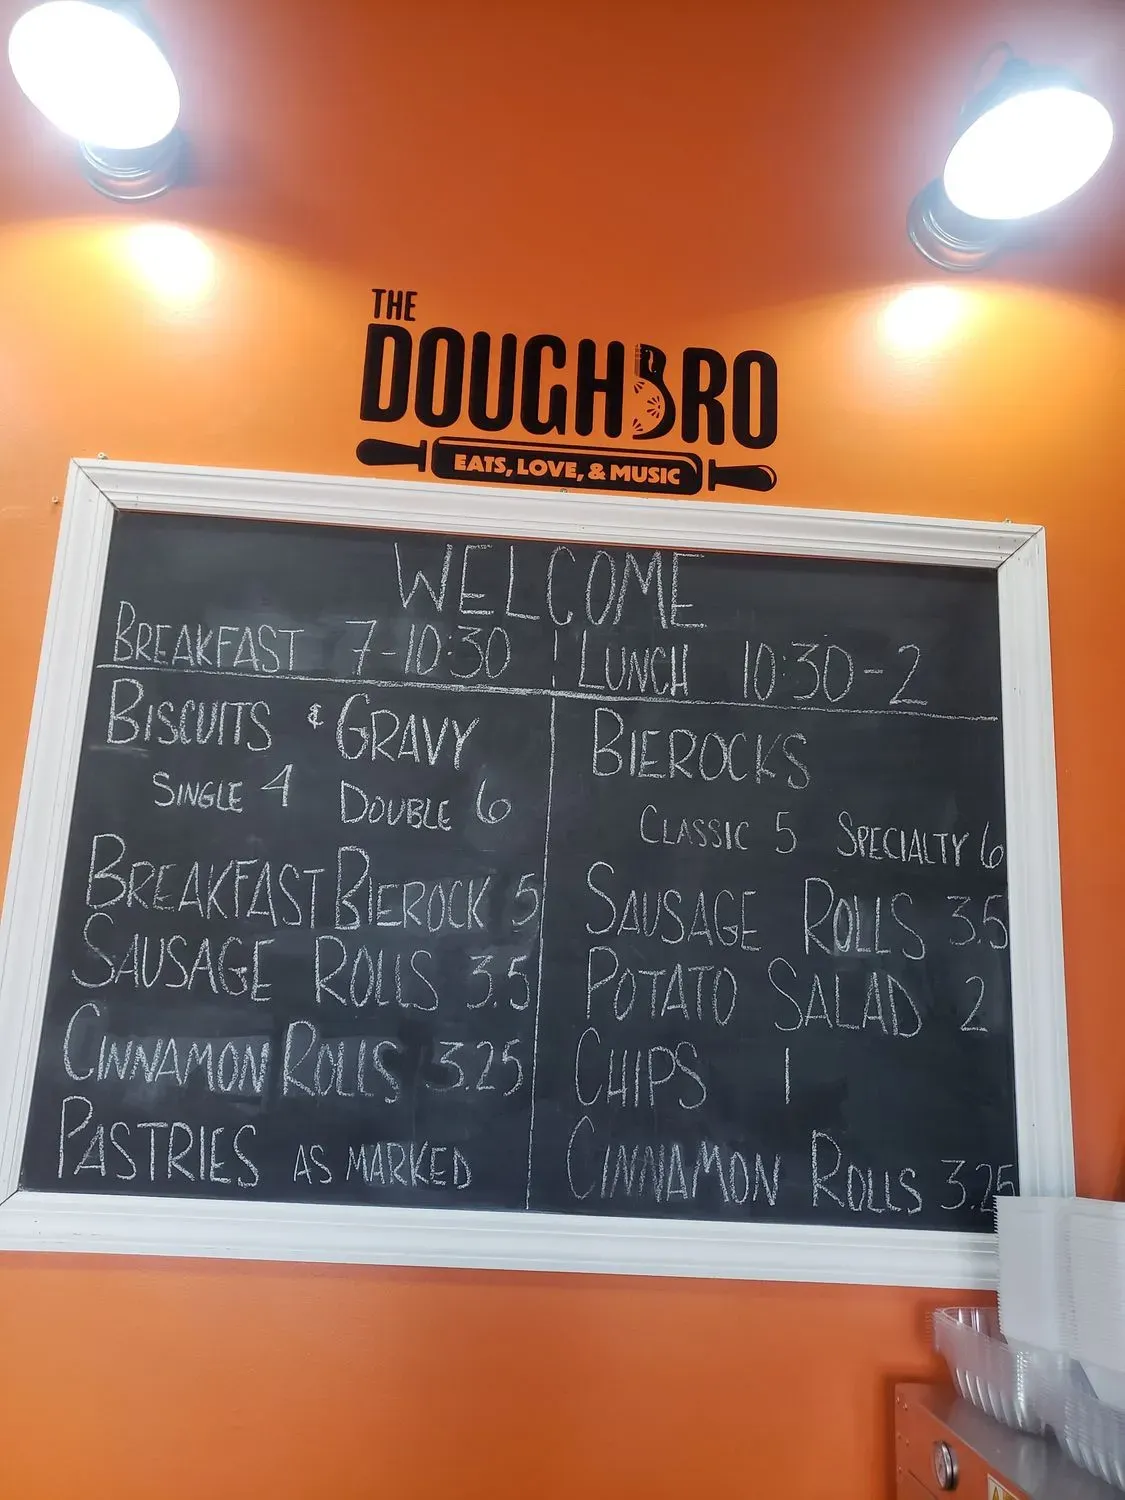 THE
DOUGHBRO
EATS, LOVE, & MUSIC
WELCOME
BREAKFAST 7-10:30
BISCUITS & GRAVY
SINGLE 4 DOUBLE 6
BREAKFAST BIEROCK 5
SAUSAGE ROLLS 3.5
CINNAMON ROLLS 3.25
PASTRIES AS MARKED
LUNCH 10:30-2
BIEROCKS
CLASSIC 5 SPECIALTY 6
SAUSAGE ROLLS 3.5
POTATO SALAD 2
CHIPS 1
CINNAMON ROLLS 3.25